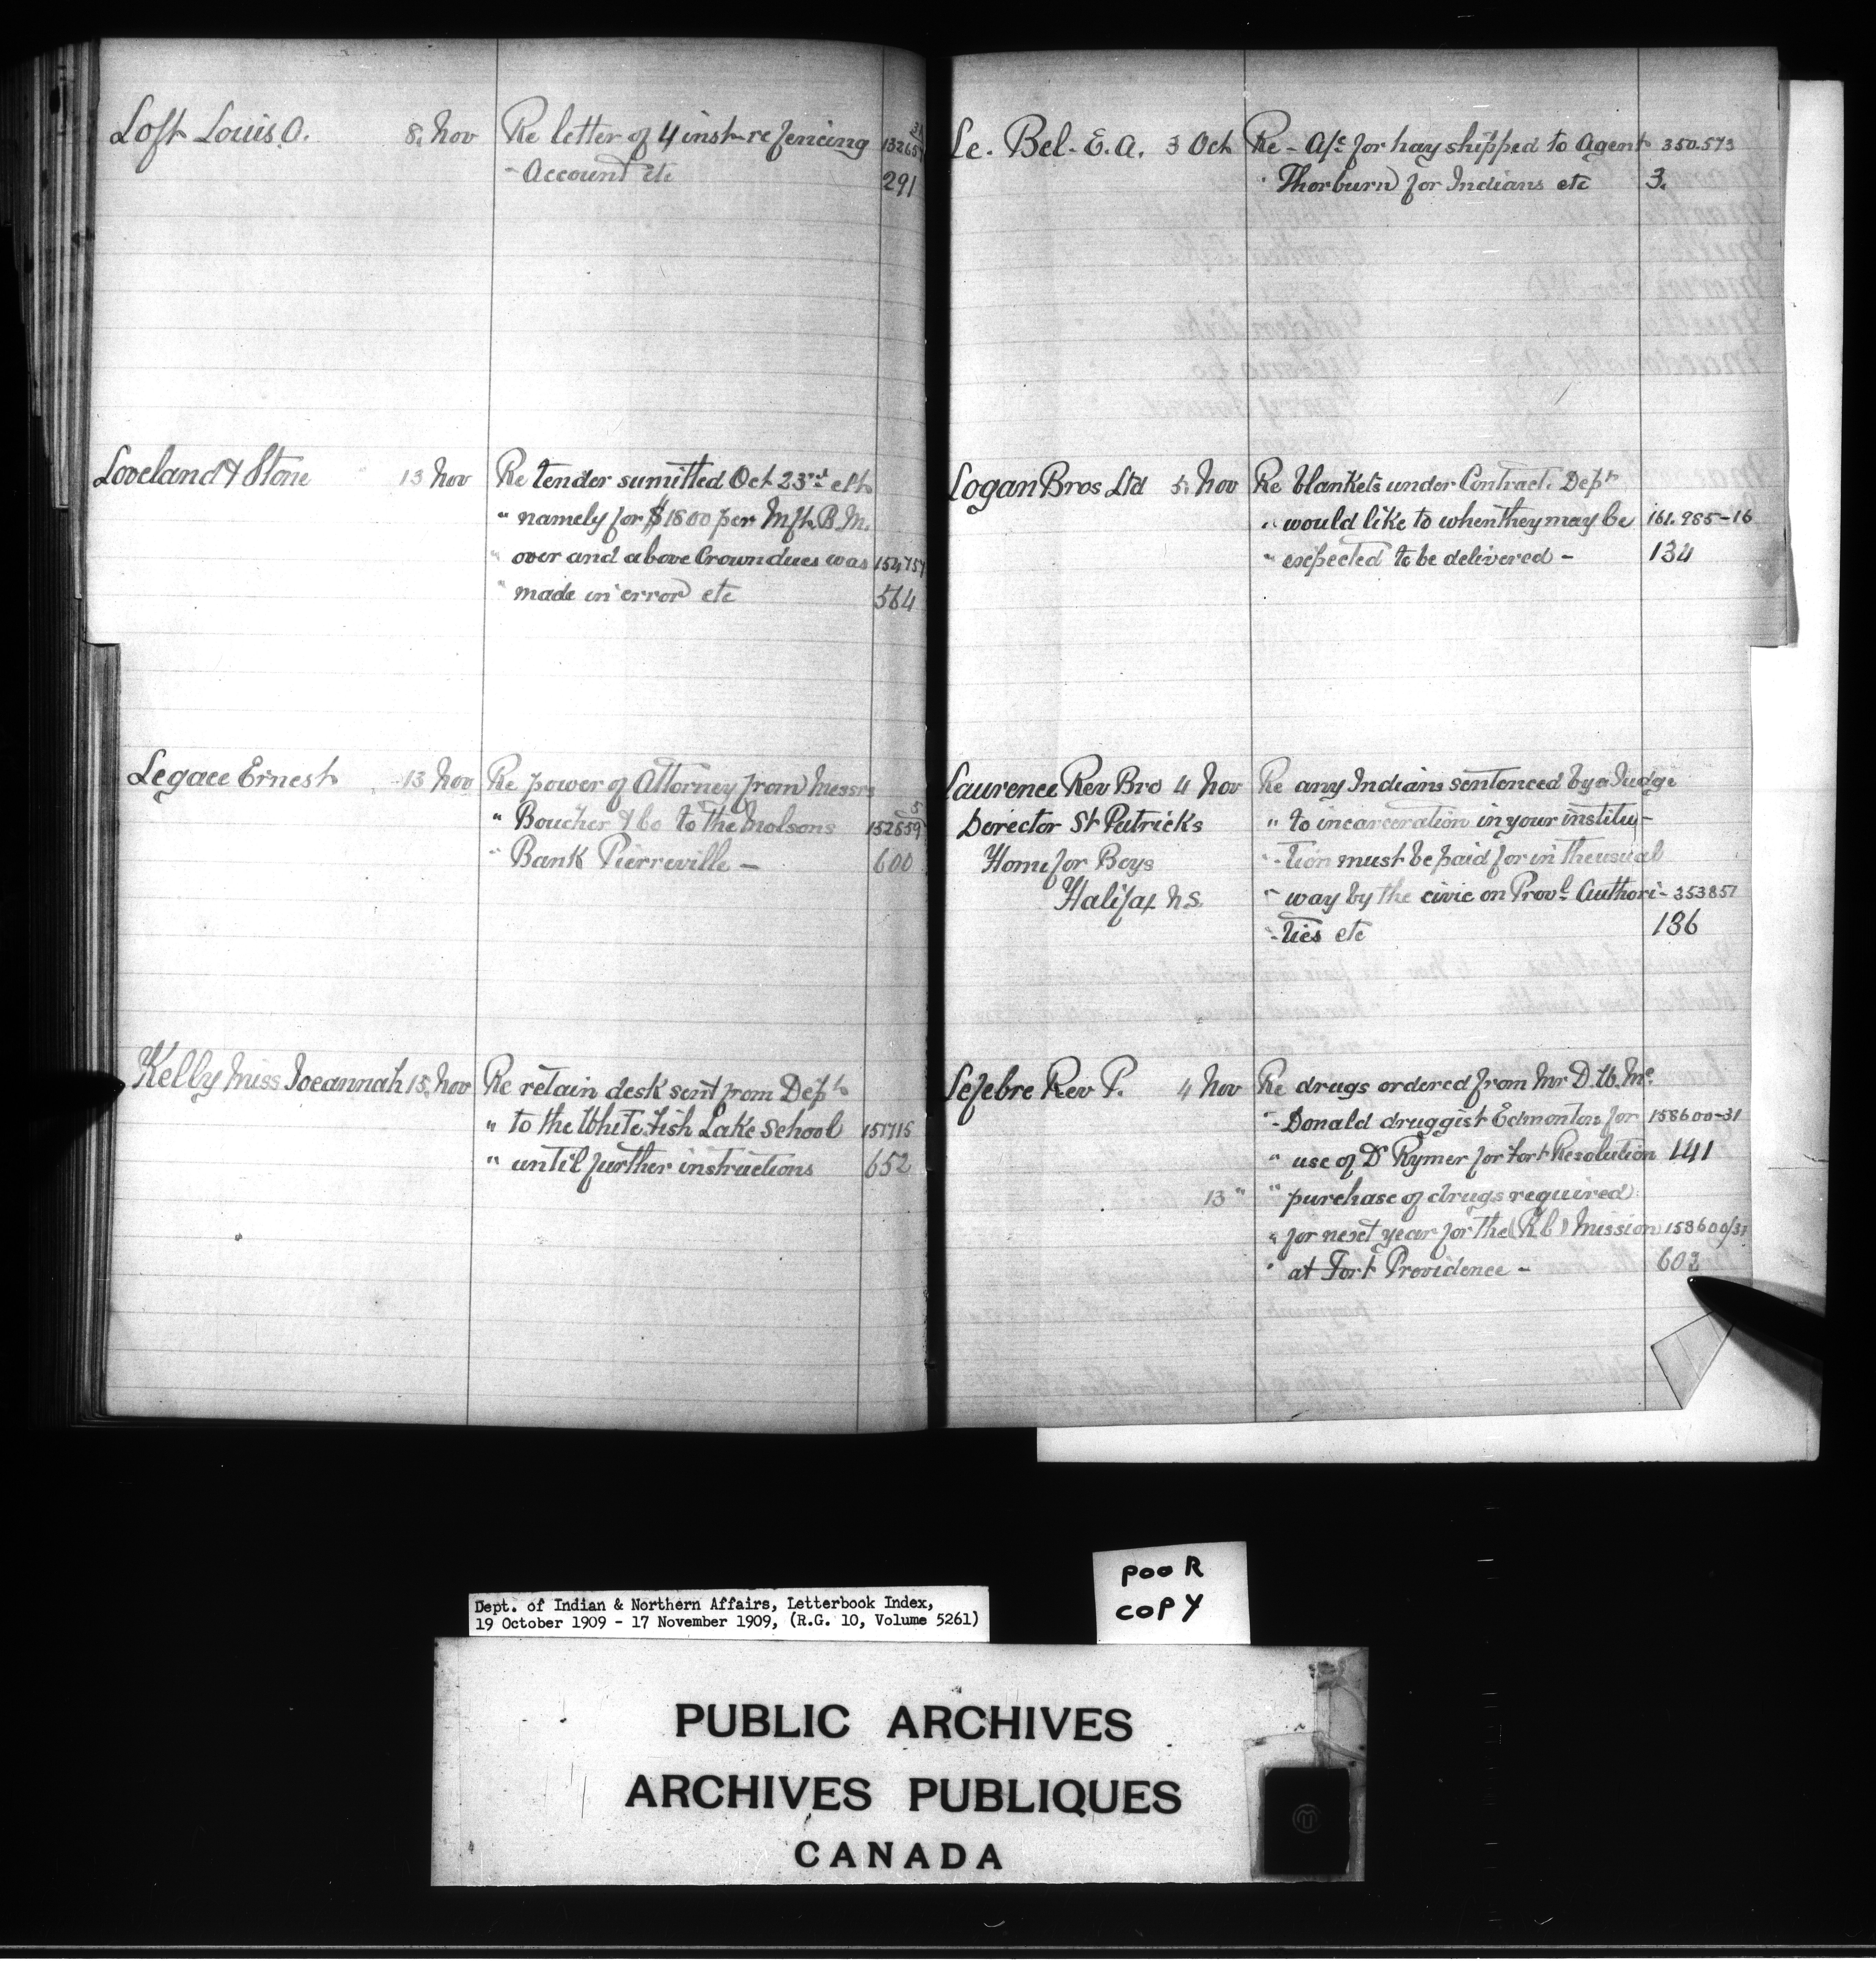 Loft Louis O. 8. Nov Re letter of 4 inst re fencing
" Account etc 291
Loveland & Stone 13 Nov Re tender sumitted Oct 23rd etc
" namely for $1800 per Mft. B.M.
" over and above Crown dues was 154757
" made in error etc 564
Legace Ernest 13 Nov Re power of Attorney from Messrs
" Boucher & Co to the Molsons 152859 5
" Bank Pierreville — 600
Kelly Miss Joeannah 15. Nov Re retain desk sent from Dept
" to the White Fish Lake School 157115
" until further instructions 652
Le. Bel. E. A. 3 Oct Re - A/c for hay shipped to Agent 350.573
" Thorburn for Indians etc 3.
Logan Bros Ltd 5. Nov Re blankets under Contract. Dept
" would like to when they may be 161.985-16
" expected to be delivered - 134
Laurence Rev Bro 4 Nov Re any Indians sentenced by a Judge
Director St Patricks " to incarceration in your institu-
Home for Boys "-tion must be paid for in the usual
Halifax N.S. " way by the civic on Provl. Authori- 353857
"-ties etc 136
Lefebre Rev P. 4 Nov Re drugs ordered from Mr D. W. Mc.
"-Donald druggist Edmonton for 158600-31
" use of Dr Rymer for Fort Resolution 141
13 " " purchase of drugs required
" for next year for the (R.C) Mission 158600/31
" at Fort Providence - 602
POOR
COPY
Dept. of Indian & Northern Affairs, Letterbook Index,
19 October 1909 - 17 November 1909, (R.G. 10, Volume 5261)
PUBLIC ARCHIVES
ARCHIVES PUBLIQUES
CANADA